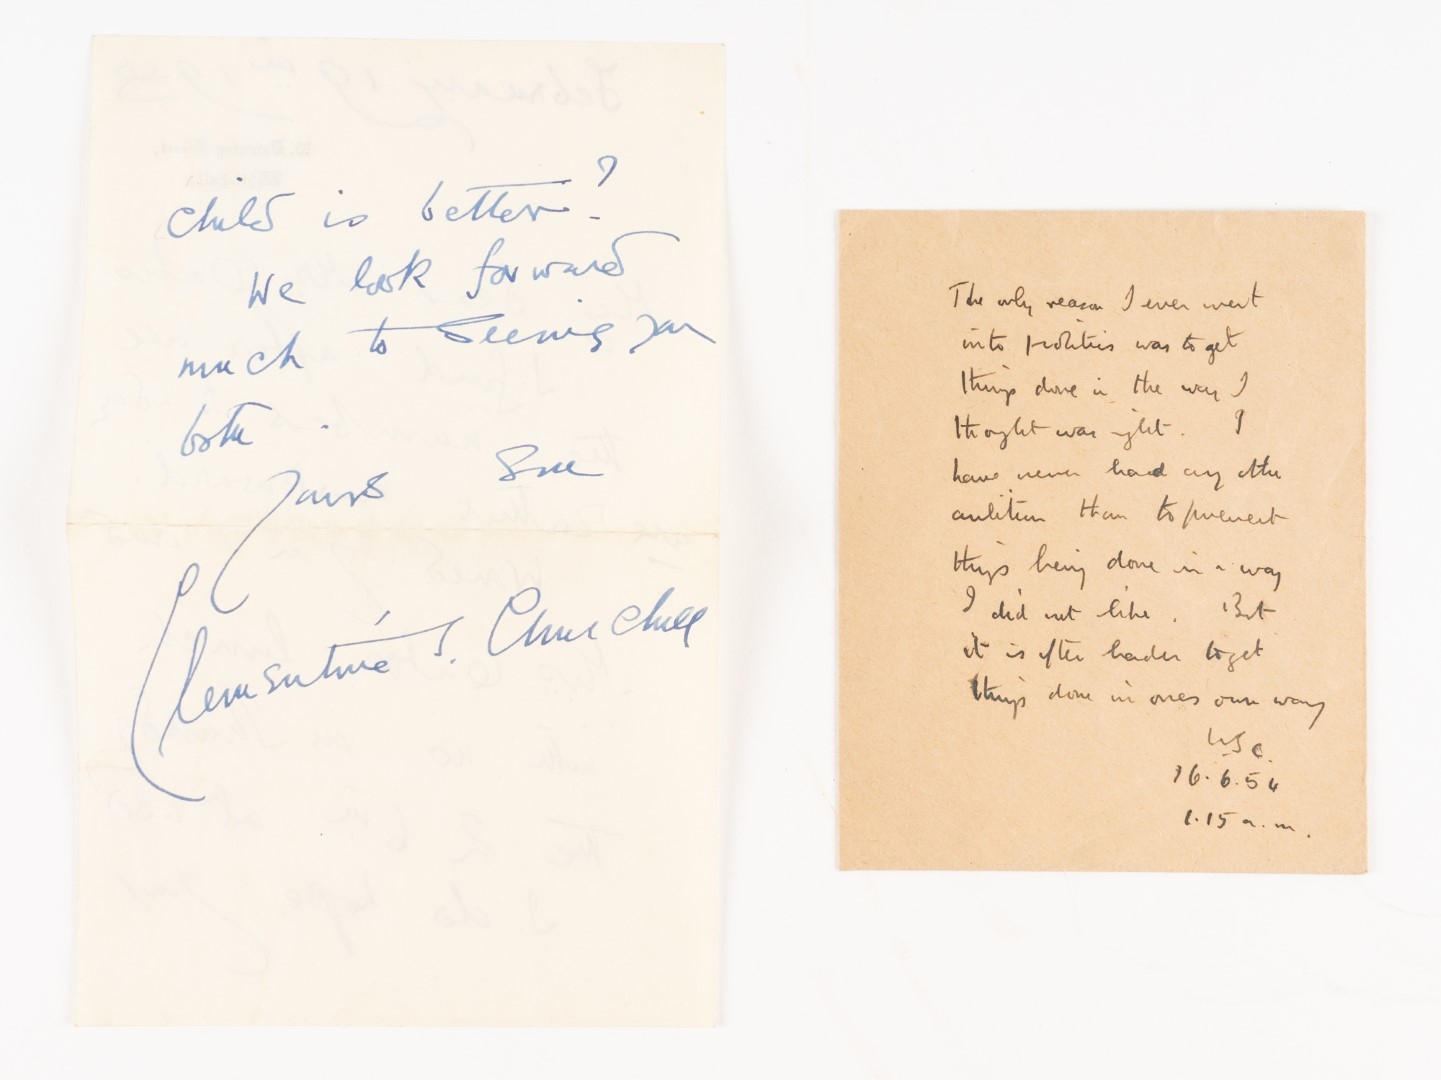 child is better?
We look forward
much to seeing you
both.
Yours Sincerely
Clementine S. Churchill
The only reason I ever went
into politics was to get
things done in the way I
thought was right. I
have never had any other
ambition than to prevent
things being done in a way
I did not like. But
it is often harder to get
things done in ones own way
WSC.
16.6.54
1.15 a.m.